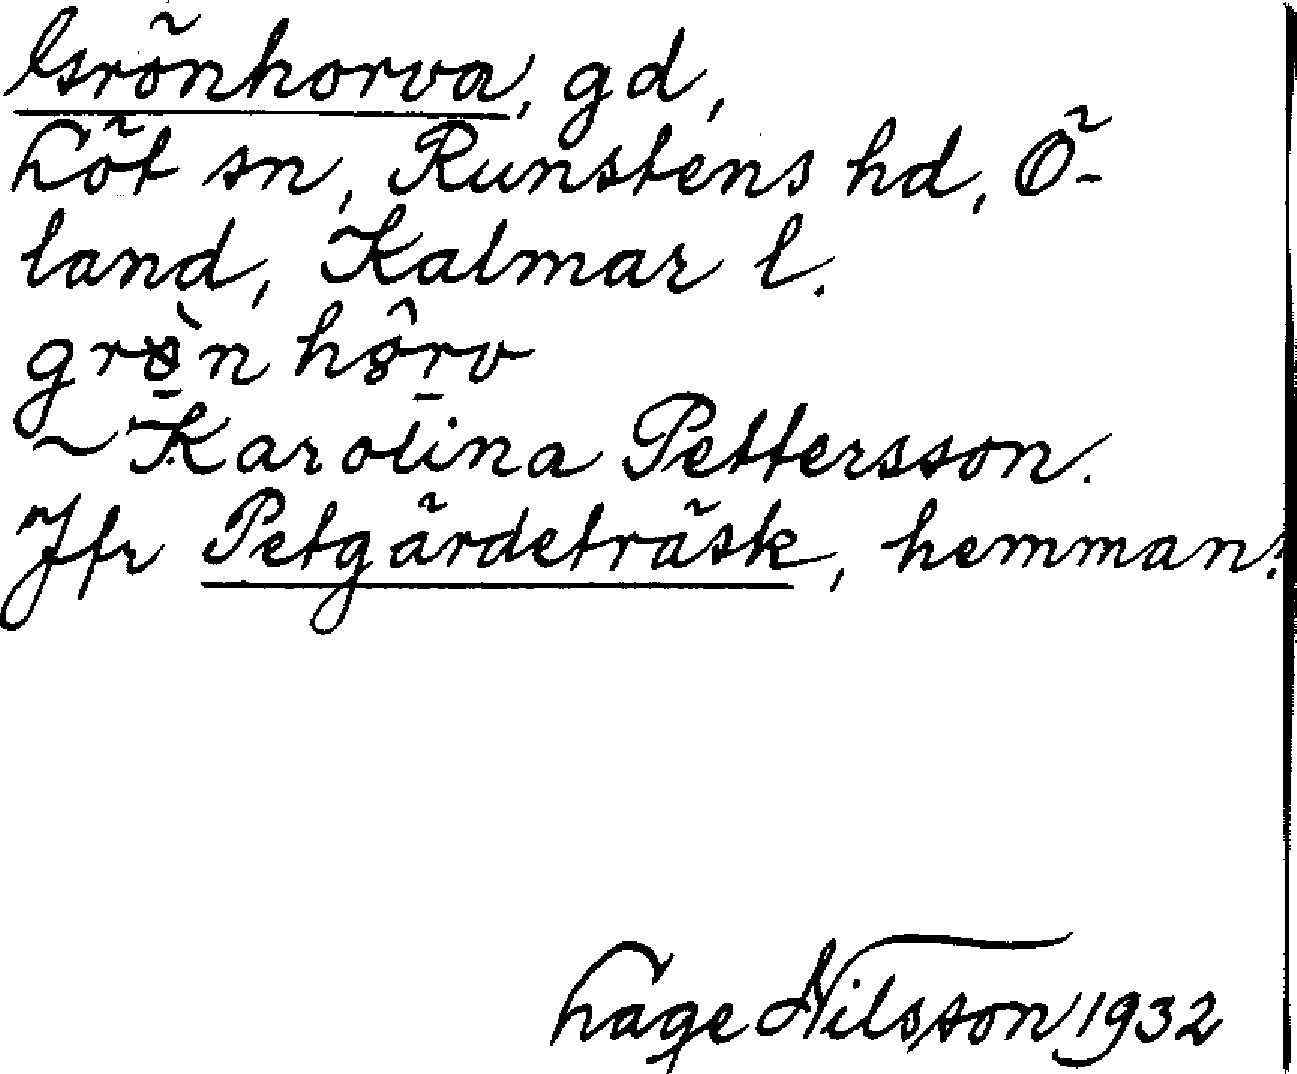 Grönhorva, gd,
Löt sn, Runstens hd, Ö-
land, Kalmar l.
grö̀n hôrv
~ Karolina Pettersson.
Jfr Petgärdeträsk, hemman.
Lage Nilsson 1932